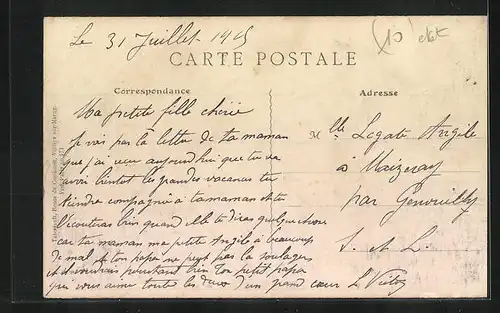 Le 31 Juillet 1915
CARTE POSTALE
Correspondance
Adresse
Ma petite fille chérie
Je vois par la lettre de ta maman
que j'ai reçu aujourdhui que tu va
avoir bientot les grandes vacances tu
tiendra compagnie à ta maman et tu
l'écoutera bien quand elle te diras quelque chose
car ta maman ma petite Angèle à beaucoup
de mal et ton papa ne peut pas la soulager
et il voudrais pourtant bien Ton petit papa
qui vous aime toutes les deux d'un grand cœur
Mlle Legate Angèle
à
par Genouilly
S. et L.